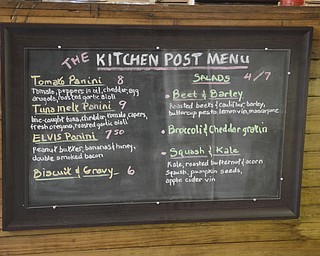 THE KITCHEN POST MENU
Tomato Panini 8
Tomato, peppers in oil, cheddar, egg
arugula, roasted garlic aioli
Tuna melt Panini 9
line-caught tuna, cheddar, tomato, capers,
fresh oregano, roasted garlic aioli
ELVIS Panini 7.50
Peanut butter, bananas & honey,
double smoked bacon
Biscuit & Gravy 6
SALADS 4/7
• Beet & Barley
Roasted beets & cauliflower, barley,
buttercup pesto, lemon vin, mascarpone
• Broccoli & Cheddar gratin
• Squash & Kale
Kale, roasted butternut & acorn
squash, pumpkin seeds,
apple cider vin